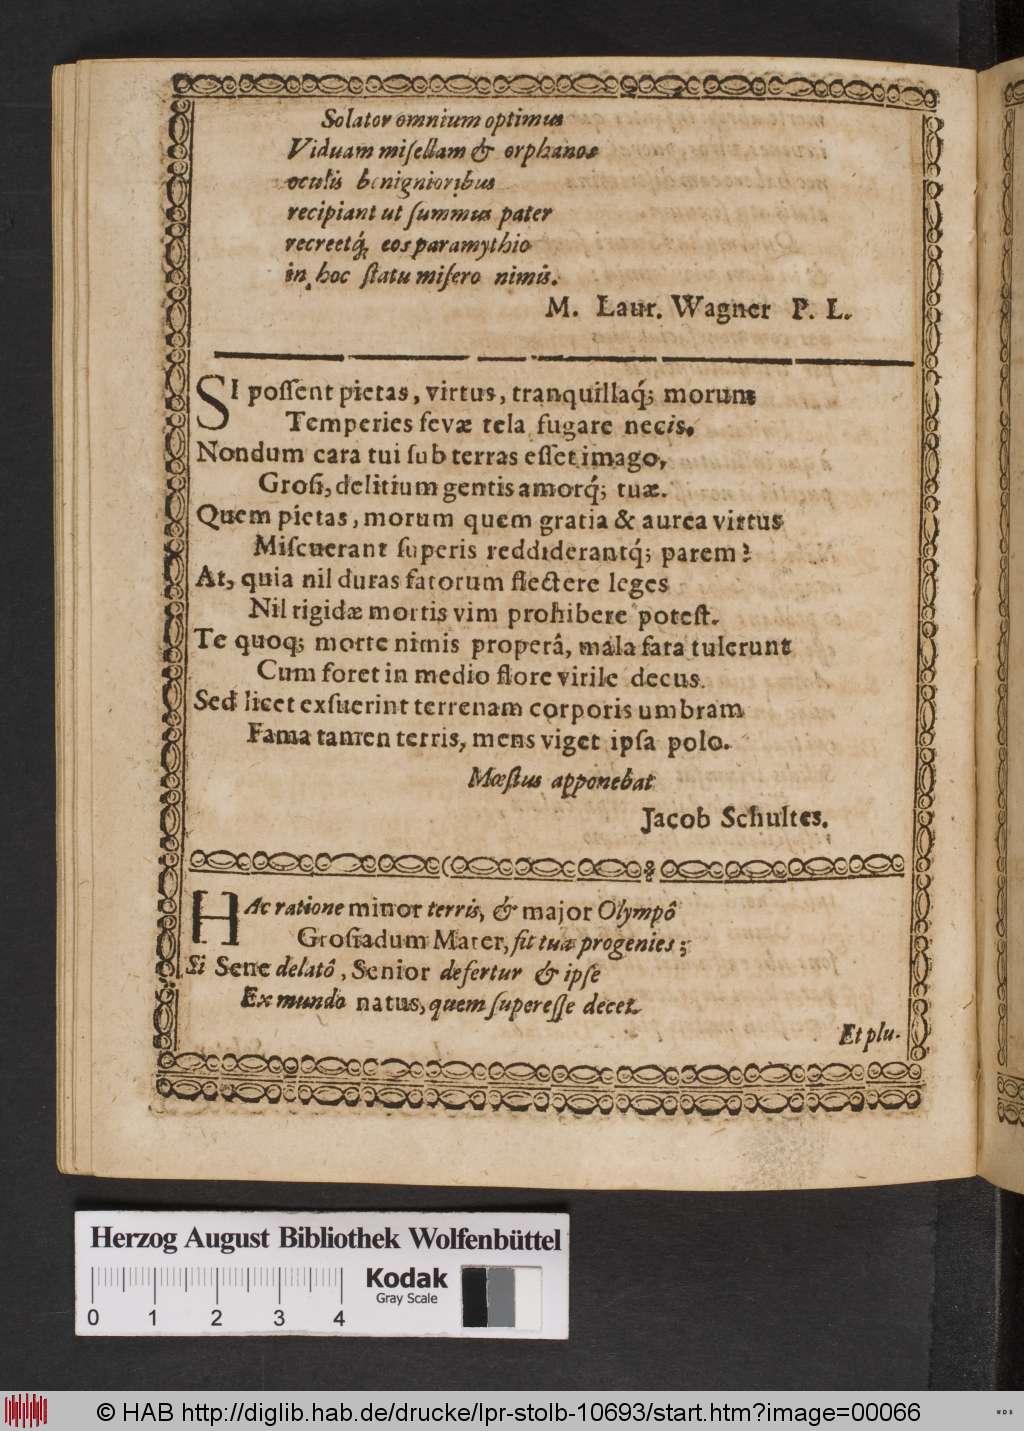 Solator omnium optimus
Viduam miſellam & orphanos
oculis benignioribus
recipiant ut ſummus pater
recreetq́; eos paramythio
in hoc ſtatu miſero nimis.
M. Laur. Wagner P. L.
SI poſſent pietas, virtus, tranquillaq́; morum
Temperies ſevæ tela fugare necis.
Nondum cara tui ſub terras eſſet imago,
Groſi, delitium gentis amorq́; tuæ.
Quem pietas, morum quem gratia & aurea virtus
Miſcuerant ſuperis reddiderantq́; parem?
At, quia nil duras fatorum flectere leges
Nil rigidæ mortis vim prohibere poteſt.
Te quoq; morte nimis properâ, mala fata tulerunt
Cum foret in medio flore virile decus.
Sed licet exſuerint terrenam corporis umbram
Fama tamen terris, mens viget ipſa polo.
Mœſtus apponebat
Jacob Schultes.
HAc ratione minor terris, & major Olympô
Groſiadum Mater, ſit tua progenies;
Si Sene delatô, Senior defertur & ipſe
Ex mundo natus, quem ſupereſſe decet.
Et plu-
Herzog August Bibliothek Wolfenbüttel
0 1 2 3 4
Kodak
Gray Scale
© HAB http://diglib.hab.de/drucke/lpr-stolb-10693/start.htm?image=00066